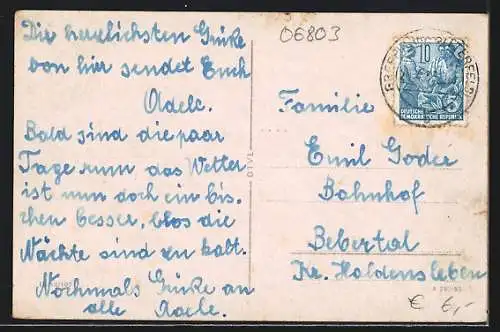 Die herzlichsten Grüße
von hier sendet Euch
Adele.
Bald sind die paar
Tage rum, das Wetter
ist nun doch ein bis-
chen besser, blos die
Nächte sind zu kalt.
Nochmals Grüße an
alle Adele.
06803
10
DEUTSCHE
DEMOKRATISCHE REPUBLIK
5
Familie
Emil Goder
Bahnhof
Bebertal
Kr. Haldensleben
€ 6,-